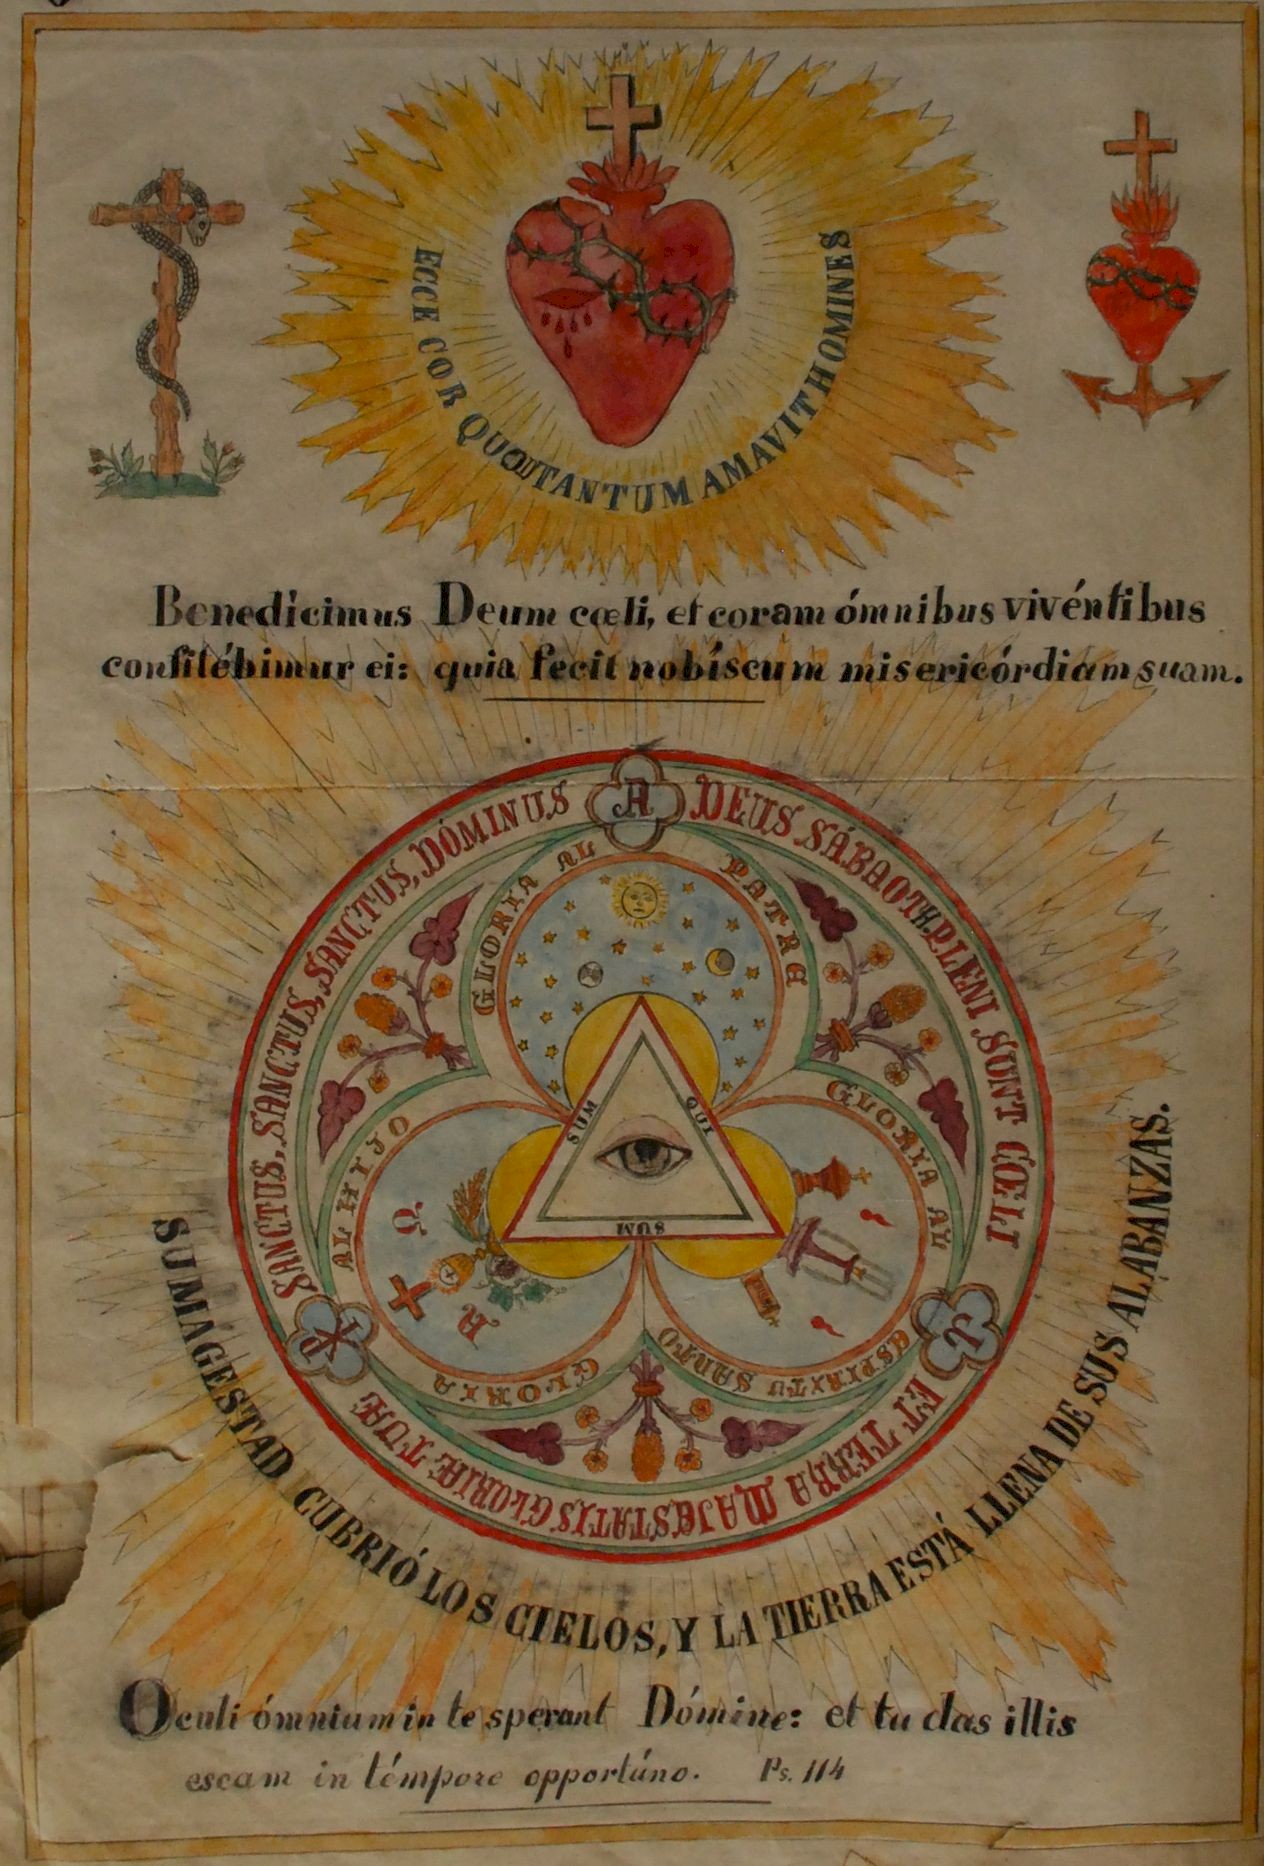 ECCE COR QUOD TANTUM AMAVIT HOMINES
Benedícimus Deum cœli, et coram ómnibus vivéntibus
confitébimur ei: quia fecit nobíscum misericórdiam suam.
SANCTUS, SANCTUS, SANCTUS, DÓMINUS DEUS SÁBAOTH. PLENI SUNT CŒLI ET TERRA MAJESTATIS GLORIÆ TUÆ
A
GLORIA AL PATRE
GLORIA AL HIJO
GLORIA AL ESPIRITU SANTO
SUM QUI SUM
Ω
A
SU MAGESTAD CUBRIÓ LOS CIELOS, Y LA TIERRA ESTÁ LLENA DE SUS ALABANZAS.
Oculi ómnium in te sperant Dómine: et tu das illis
escam in témpore opportúno. Ps. 114